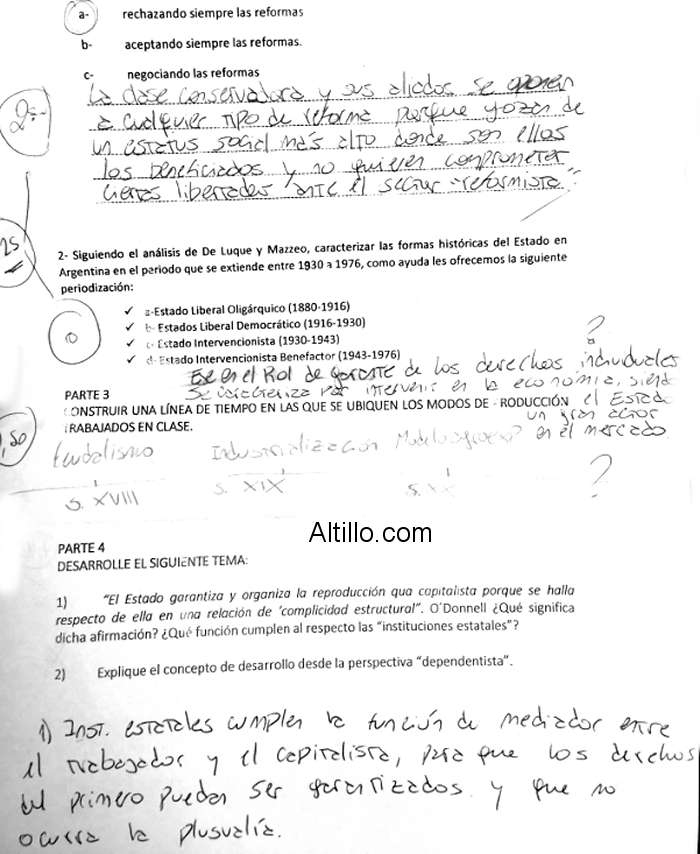 a- rechazando siempre las reformas
b- aceptando siempre las reformas.
c- negociando las reformas
La clase conservadora y sus aliados se oponen
a cualquier tipo de reforma porque gozan de
un estatus social más alto donde son ellos
los beneficiados y no quieren comprometer
ciertas libertades ante el sector "reformista".
2.-
25
2- Siguiendo el análisis de De Luque y Mazzeo, caracterizar las formas históricas del Estado en
Argentina en el periodo que se extiende entre 1930 a 1976, como ayuda les ofrecemos la siguiente
periodización:
0
✓ a-Estado Liberal Oligárquico (1880-1916)
✓ b- Estados Liberal Democrático (1916-1930)
✓ c- Estado Intervencionista (1930-1943)
✓ d- Estado Intervencionista Benefactor (1943-1976)
?
en el Rol de garante de los derechos individuales
Se caracteriza por intervenir en la economía, siendo
el Estado
un gran actor
en el mercado.
PARTE 3
CONSTRUIR UNA LÍNEA DE TIEMPO EN LAS QUE SE UBIQUEN LOS MODOS DE PRODUCCIÓN
TRABAJADOS EN CLASE.
,50
feudalismo Industrialización Modelo
S. XVIII S. XIX S. XX ?
Altillo.com
PARTE 4
DESARROLLE EL SIGUIENTE TEMA:
1) "El Estado garantiza y organiza la reproducción qua capitalista porque se halla
respecto de ella en una relación de 'complicidad estructural". O'Donnell ¿Qué significa
dicha afirmación? ¿Qué función cumplen al respecto las "instituciones estatales"?
2) Explique el concepto de desarrollo desde la perspectiva "dependentista".
1) Inst. estatales cumplen la función de mediador entre
el trabajador y el capitalista, para que los derechos
del primero puedan ser garantizados y que no
ocurra la plusvalía.